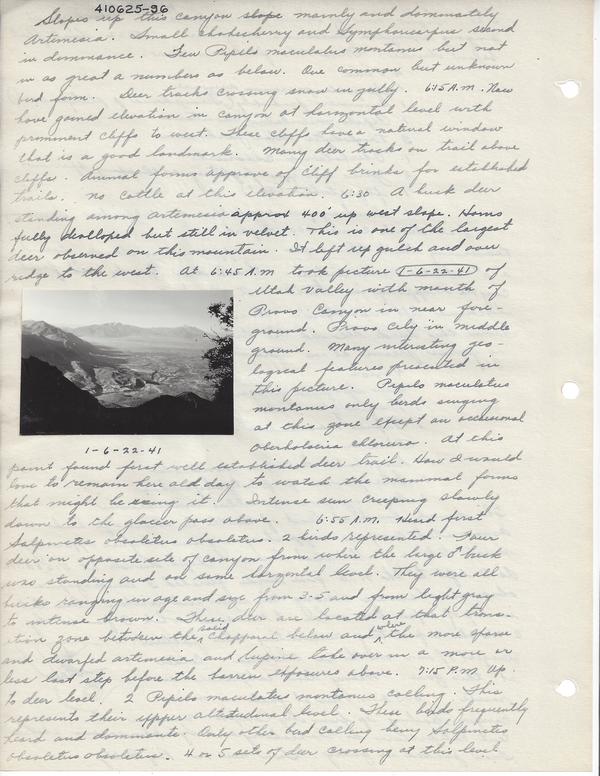 410625-96
Slopes up this canyon slope mainly and dominately
Artemesia. Small chokecherry and Symphoricarpus second
in dominance. Few Pepilo maculatus montanus but not
in as great a numbers as below. One common but unknown
bird form. Deer tracks crossing snow in gully. 6:15 A.M. Now
have gained elevation in canyon at horizontal level with
prominent cliffs to west. These cliffs have a natural window
that is a good landmark. Many deer tracks on trail above
cliffs. Animal forms approve of cliff brinks for established
trails. No cattle at this elevation. 6:30 A buck deer
standing among artemesia approx 400' up west slope. Horns
fully devolloped but still in velvet. This is one of the largest
deer observed on this mountain. It left up gulch and over
ridge to the west. At 6:45 A.M took picture 1-6-22-41 of
Utah Valley with mouth of
Provo Canyon in near fore-
ground. Provo City in middle
ground. Many interesting geo-
logical features presented in
this picture. Pepilo maculatus
montanus only birds singing
at this zone except an occasional
Oberholseria chlorura. At this
1-6-22-41
point found first well established deer trail. How I would
love to remain here all day to watch the mammal forms
that might be using it. Intense sun creeping slowly
down to the glacier pass above. 6:55 A.M. Heard first
Salpinctes obsoletus obsoletus. 2 birds represented. Four
deer on opposite side of canyon from where the large ♂ buck
was standing and on same horizontal level. They were all
bucks ranging in age and size from 3-5 and from light gray
to intense brown. These deer are located at that trans-
ition zone between the said chapparal below and where the more sparse
and dwarfed artemesia and lupine take over in a more or
less last step before the barren exposures above. 7:15 P.M Up
to deer level. 2 Pepilo maculatus montanus calling. This
represents their upper altitudinal level. These birds frequently
heard and dominate. Only other bird calling being Salpinctes
obsoletus obsoletus. 4 or 5 sets of deer crossing at this level